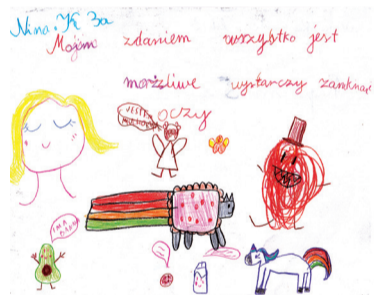 Nina.K 3a
Moim zdaniem wszystko jest
możliwe wystarczy zamknąć
oczy
JESTEM
I'M A